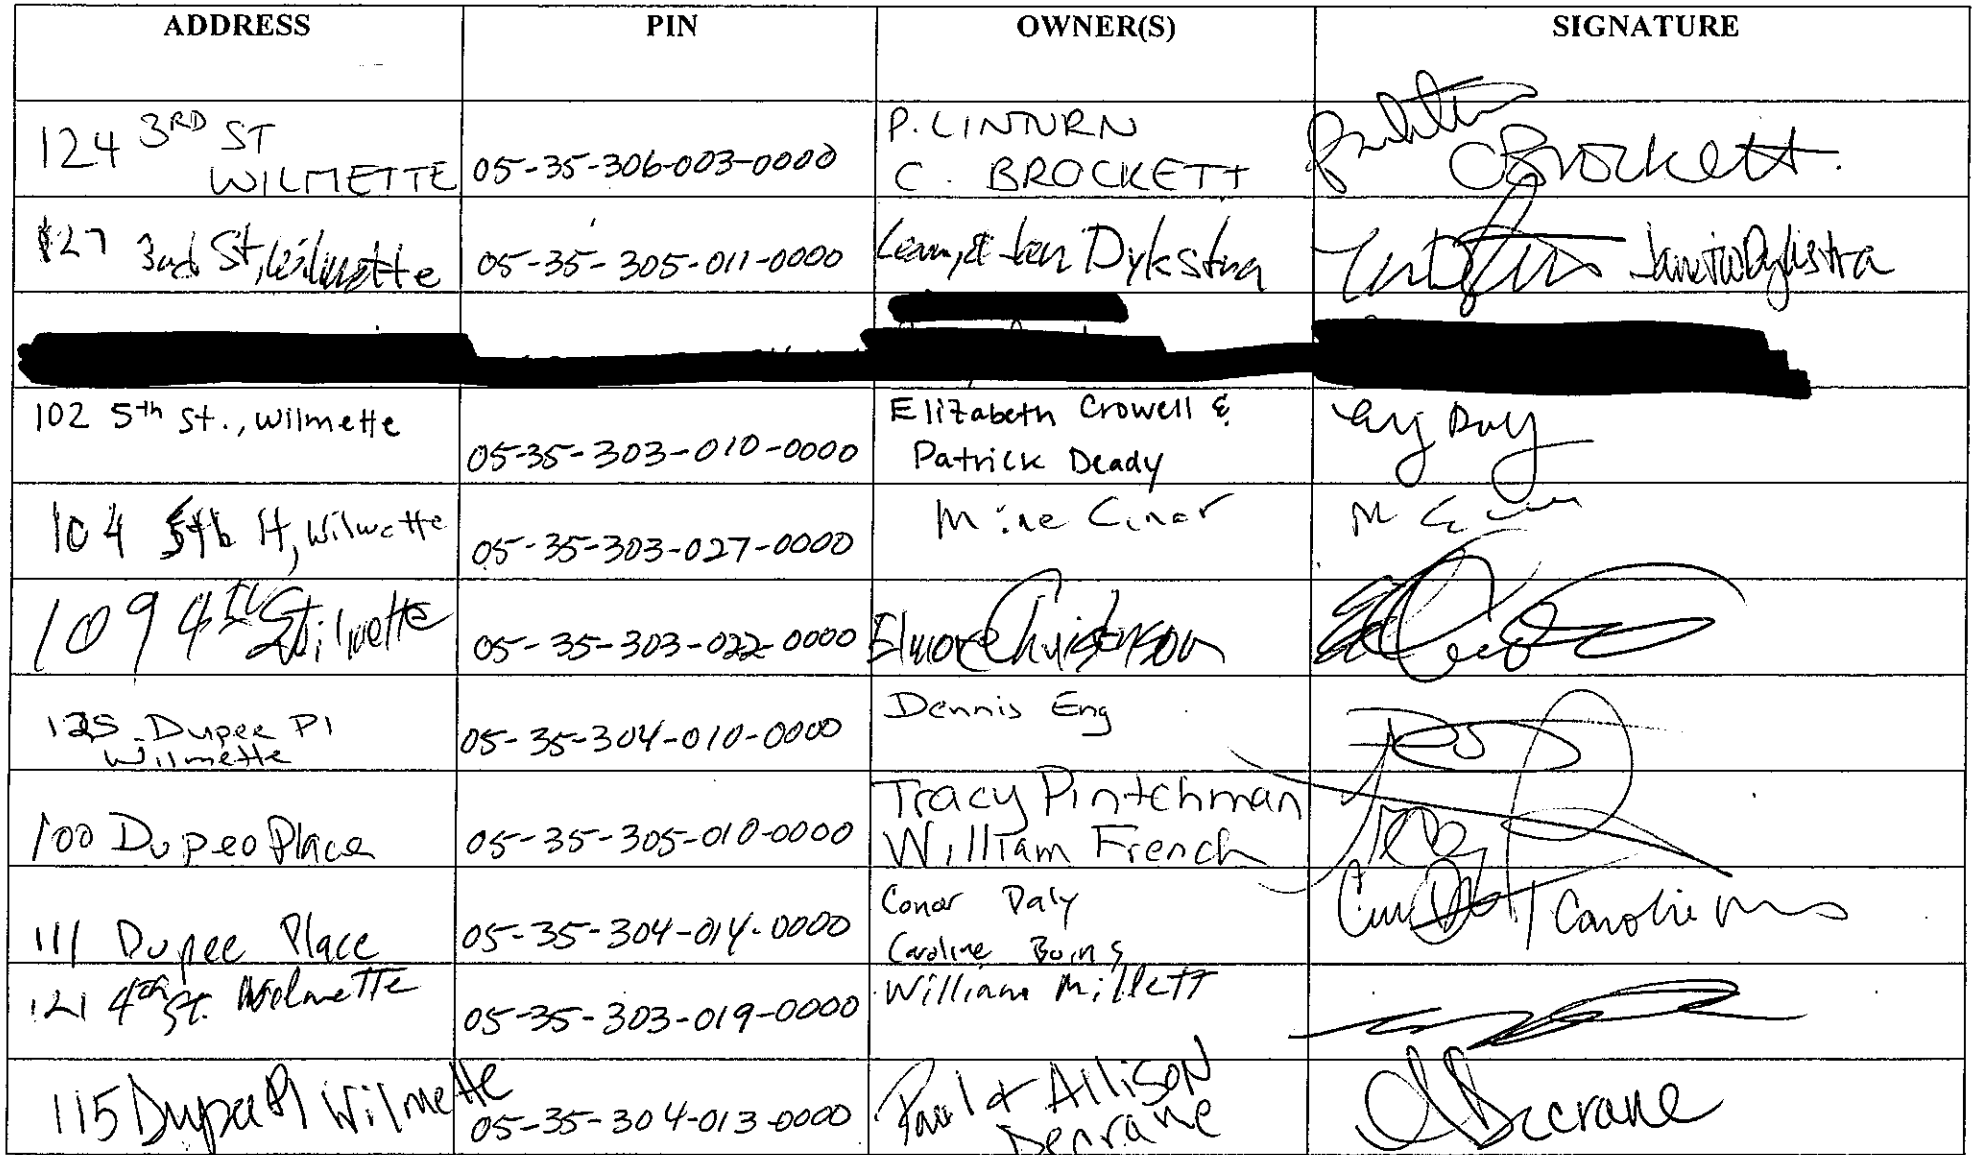 ADDRESS PIN OWNER(S) SIGNATURE
124 3RD ST
WILMETTE
05-35-306-003-0000
P. LINTURN
C. BROCKETT
CBrockett
127 3rd St, Wilmette
05-35-305-011-0000
Dykstra
Dykstra
102 5th St., Wilmette
05-35-303-010-0000
Elizabeth Crowell &
Patrick Deady
104 5th St, Wilmette
05-35-303-027-0000
Mine Cinar
M
109 4th St
Wilmette
05-35-303-022-0000
Elmore Christenson
125 Dupee Pl
Wilmette
05-35-304-010-0000
Dennis Eng
100 Dupee Place
05-35-305-010-0000
Tracy Pintchman
William French
111 Dupee Place
05-35-304-014-0000
Conor Daly
Caroline
121 4th St. Wilmette
05-35-303-019-0000
William Millett
115 Dupee Pl Wilmette
05-35-304-013-0000
Paul & Allison